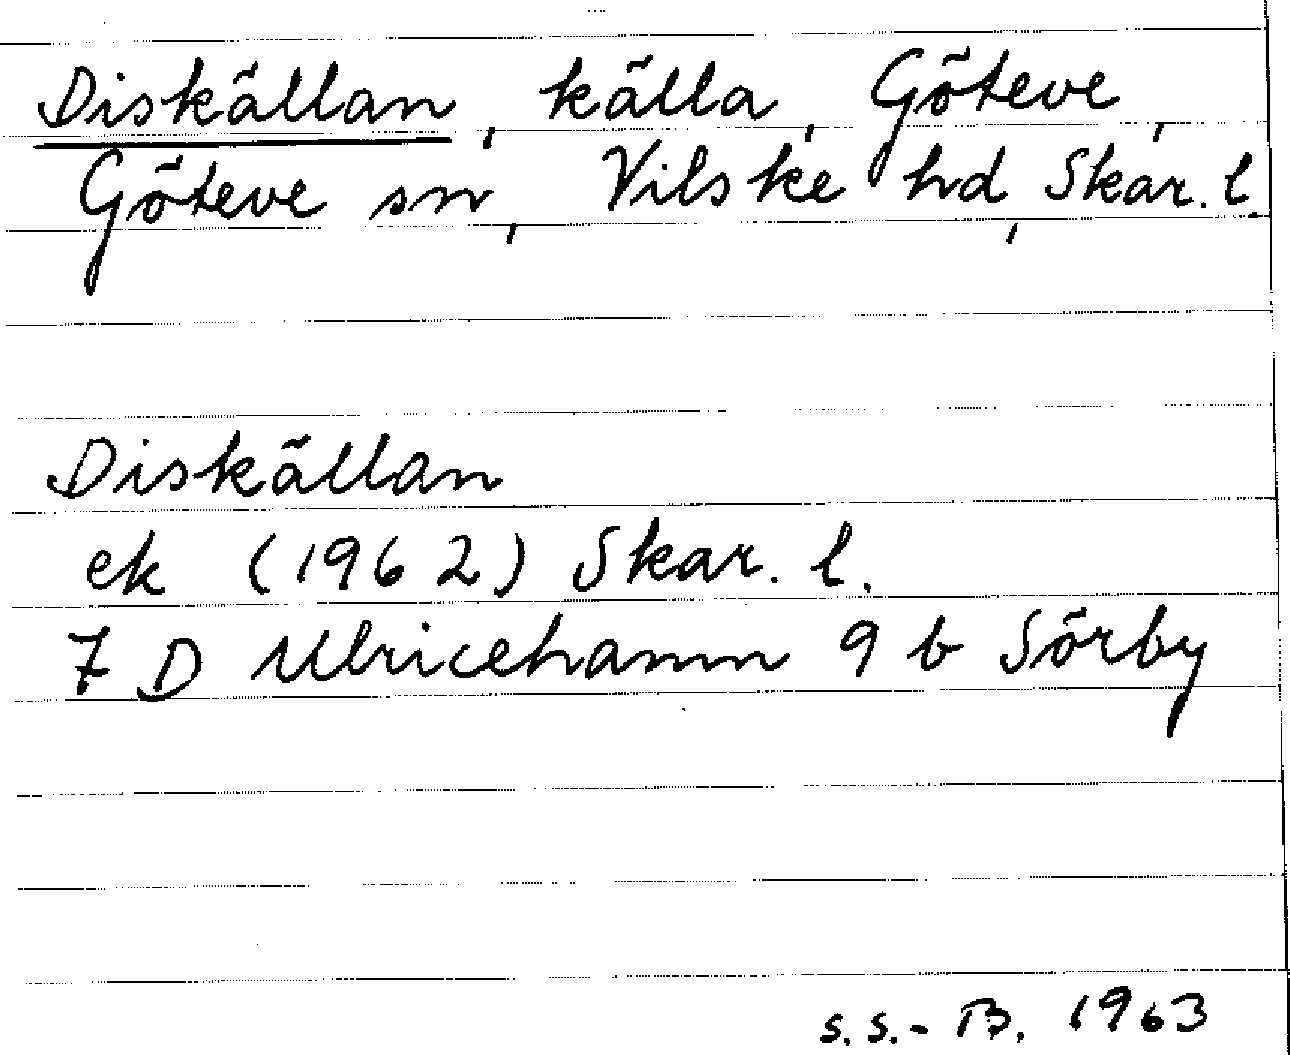 Diskällan, källa, Göteve,
Göteve sn, Vilske hd, Skar. l.
Diskällan
ek (1962) Skar. l.
7 D Ulricehamn 9 b Sörby
S.S.-B. 1963